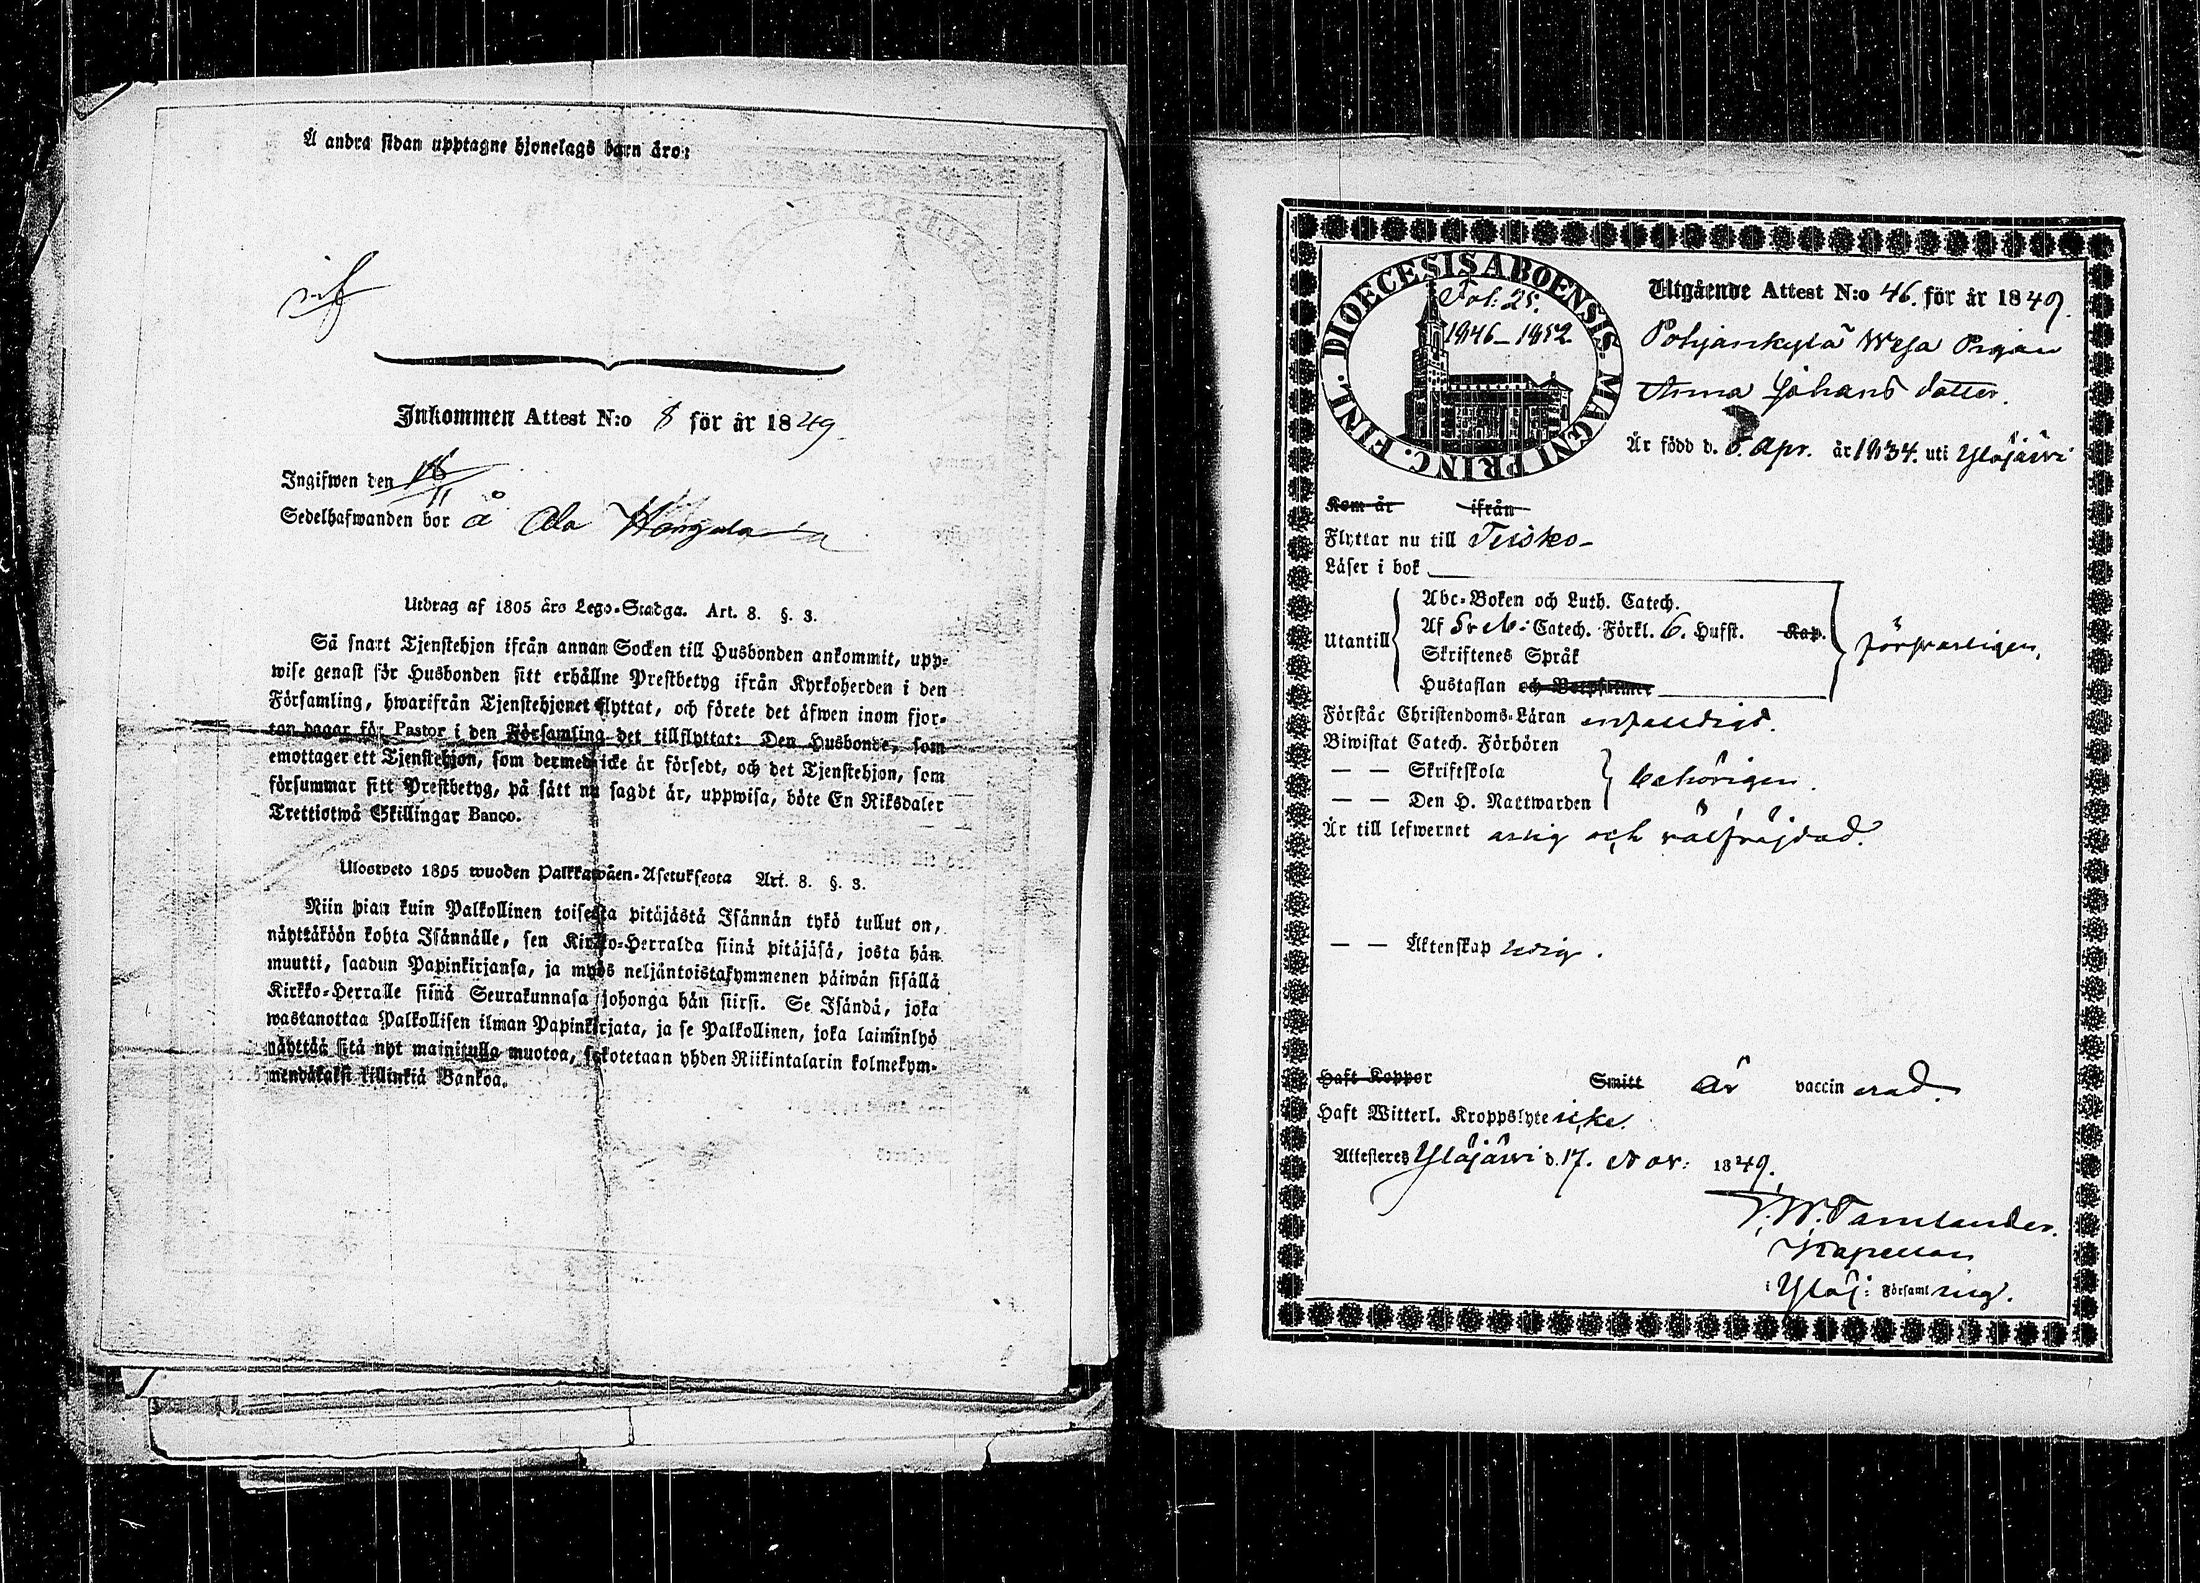 Å andra sidan upptagne hjonelags barn äro:
Inkommen Attest N:o 8 för år 1849.
Ingifwen den 18/11
Sedelhafwanden bor å Ala
Utdrag af 1805 års Lego-Stadga. Art. 8. §. 3.
Så snart Tjenstehjon ifrån annan Socken till Husbonden ankommit, upp-
wise genast för Husbonden sitt erhållne Prestbetyg ifrån Kyrkoherden i den
Församling, hwarifrån Tjenstehjonet flyttat, och förete det äfwen inom fjor-
ton dagar för Pastor i den Församling det tillflyttat: Den Husbonde, som
emottager ett Tjenstehjon, som dermed icke är försedt, och det Tjenstehjon, som
försummar sitt Prestbetyg, på sätt nu sagdt är, uppwisa, böte En Riksdaler
Trettiotwå Skillingar Banco.
Ulosweto 1805 wuoden Palkkawäen-Asetuksesta Art. 8. §. 3.
Niin pian kuin Palkollinen toisesta pitäjästä Isännän tykö tullut on,
näyttäköön kohta Isännälle, sen Kirkko-Herralda siinä pitäjäsä, josta hän
muutti, saadun Papinkirjansa, ja myös neljäntoistakymmenen päiwän sisällä
Kirkko-Herralle siinä Seurakunnasa johonga hän siirsi. Se Isändä, joka
wastanottaa Palkollisen ilman Papinkirjata, ja se Palkollinen, joka laiminlyö
näyttää sitä nyt mainitulla muotoa, sakotetaan yhden Riikintalarin kolmekym-
mendäkaksi killinkiä Bankoa.
DIOECESIS ABOENSIS. MAGNI PRINC. FINL.
Fol: 25.
1846–1852
Utgående Attest N:o 46. för år 1849.
Pohjankylä Wesa Pigan
Anna Johans dotter.
Är född d. 8 Apr. år 1834. uti Ylöjärvi
Kom år ifrån
Flyttar nu till Teisko
Läser i bok
Abc-Boken och Luth. Catech.
Utantill Af Catech. Förkl. 6. Hufst. Kap. försvarligen,
Skriftenes Språk
Hustaflan och
Förstår Christendoms-Läran
Biwistat Catech. Förhören
— — Skriftskola behörigen.
— — Den H. Nattwarden
Är till lefwernet ärlig och välfräjdad.
— — Äktenskap ledig.
Haft Koppor Smitt är vaccinerad.
Haft Witterl. Kroppslyte icke.
Attesteres Ylöjärvi d. 17. Nov: 1849.
Tamlander.
Kapellan
i Ylöj: Församling.